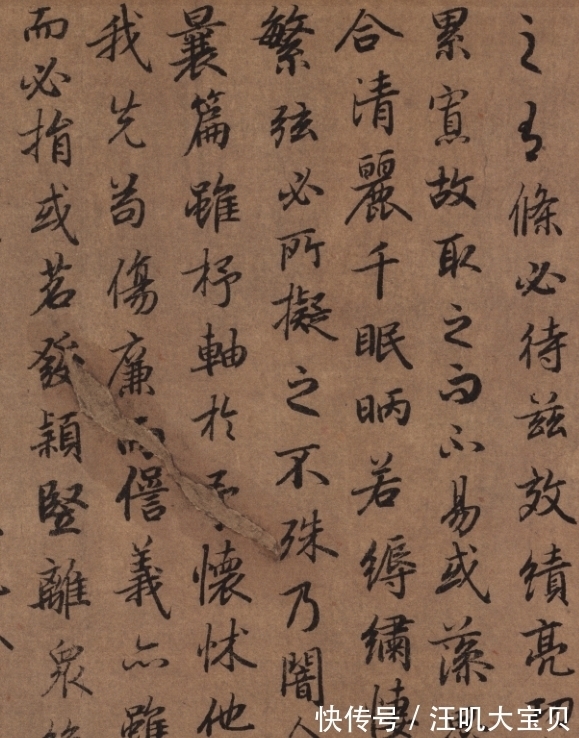 之有條必待茲效績亮
累寡故取足而不易或藻
合清麗千眠昞若縟繡悽
繁弦必所擬之不殊乃闇
曩篇雖杼軸於予懷怵他
我先苟傷廉而愆義亦雖
而必捐或苕發穎竪離眾
快传号 / 汪叽大宝贝